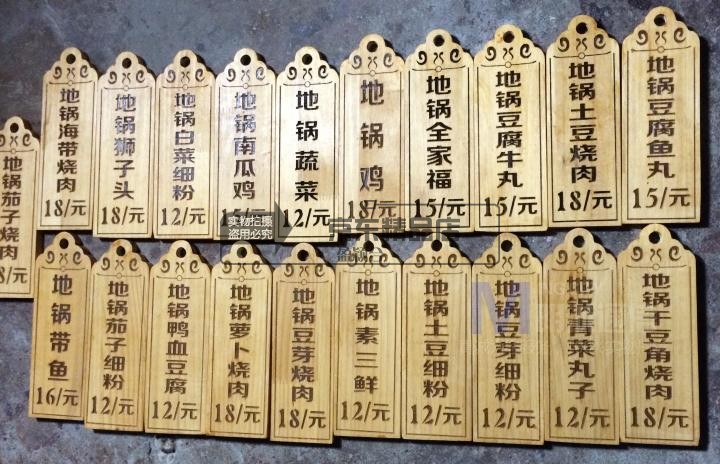 地锅茄子烧肉
8/元
地锅海带烧肉
18/元
地锅狮子头
18/元
地锅白菜细粉
12/元
地锅南瓜鸡
地锅蔬菜
12/元
地锅鸡
18/元
地锅全家福
15/元
地锅豆腐牛丸
15/元
地锅土豆烧肉
18/元
地锅豆腐鱼丸
15/元
实物拍摄
盗用必究
京东精品店
地锅带鱼
16/元
地锅茄子细粉
12/元
地锅鸭血豆腐
12/元
地锅萝卜烧肉
18/元
地锅豆芽烧肉
18/元
地锅素三鲜
12/元
地锅土豆细粉
12/元
地锅豆芽细粉
12/元
地锅青菜丸子
12/元
地锅干豆角烧肉
18/元